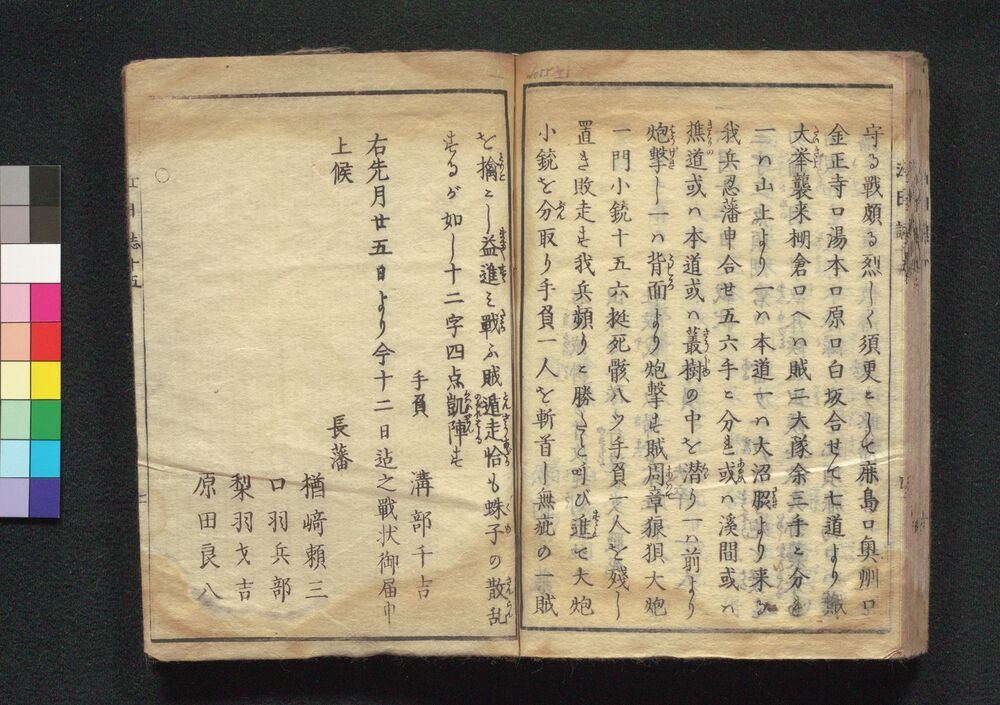 守る戰頗る烈しく須更にして鹿島口奥州口
金正寺口湯本口原口白坂合せて七道より賊
大挙襲来棚倉口へハ賊二大隊余三手に分を
一ハ山上より一ハ本道一ハ大沼脇より来る
我兵忍藩申合せ五六手に分れ或ハ溪間或ハ
樵道或ハ本道或ハ叢樹の中を潜り一ハ前より
炮撃し一ハ背面より炮撃す賊周章狼狽大炮
一門小銃十五六挺死骸八ツ手負一人を殘し
置き敗走す我兵頻りに勝たと呼び進て大炮
小銃を分取り手負一人を斬首し無疵の一賊
を擒にし益進み戰ふ賊遁走恰も蛛子の散乱
するが如し十二字四点凱陣す
手負 溝部千吉
右先月廿五日より今十二日迠之戰状御届申
上候
長藩
楢﨑頼三
口羽兵部
梨羽才吉
原田良八
江日誌十五